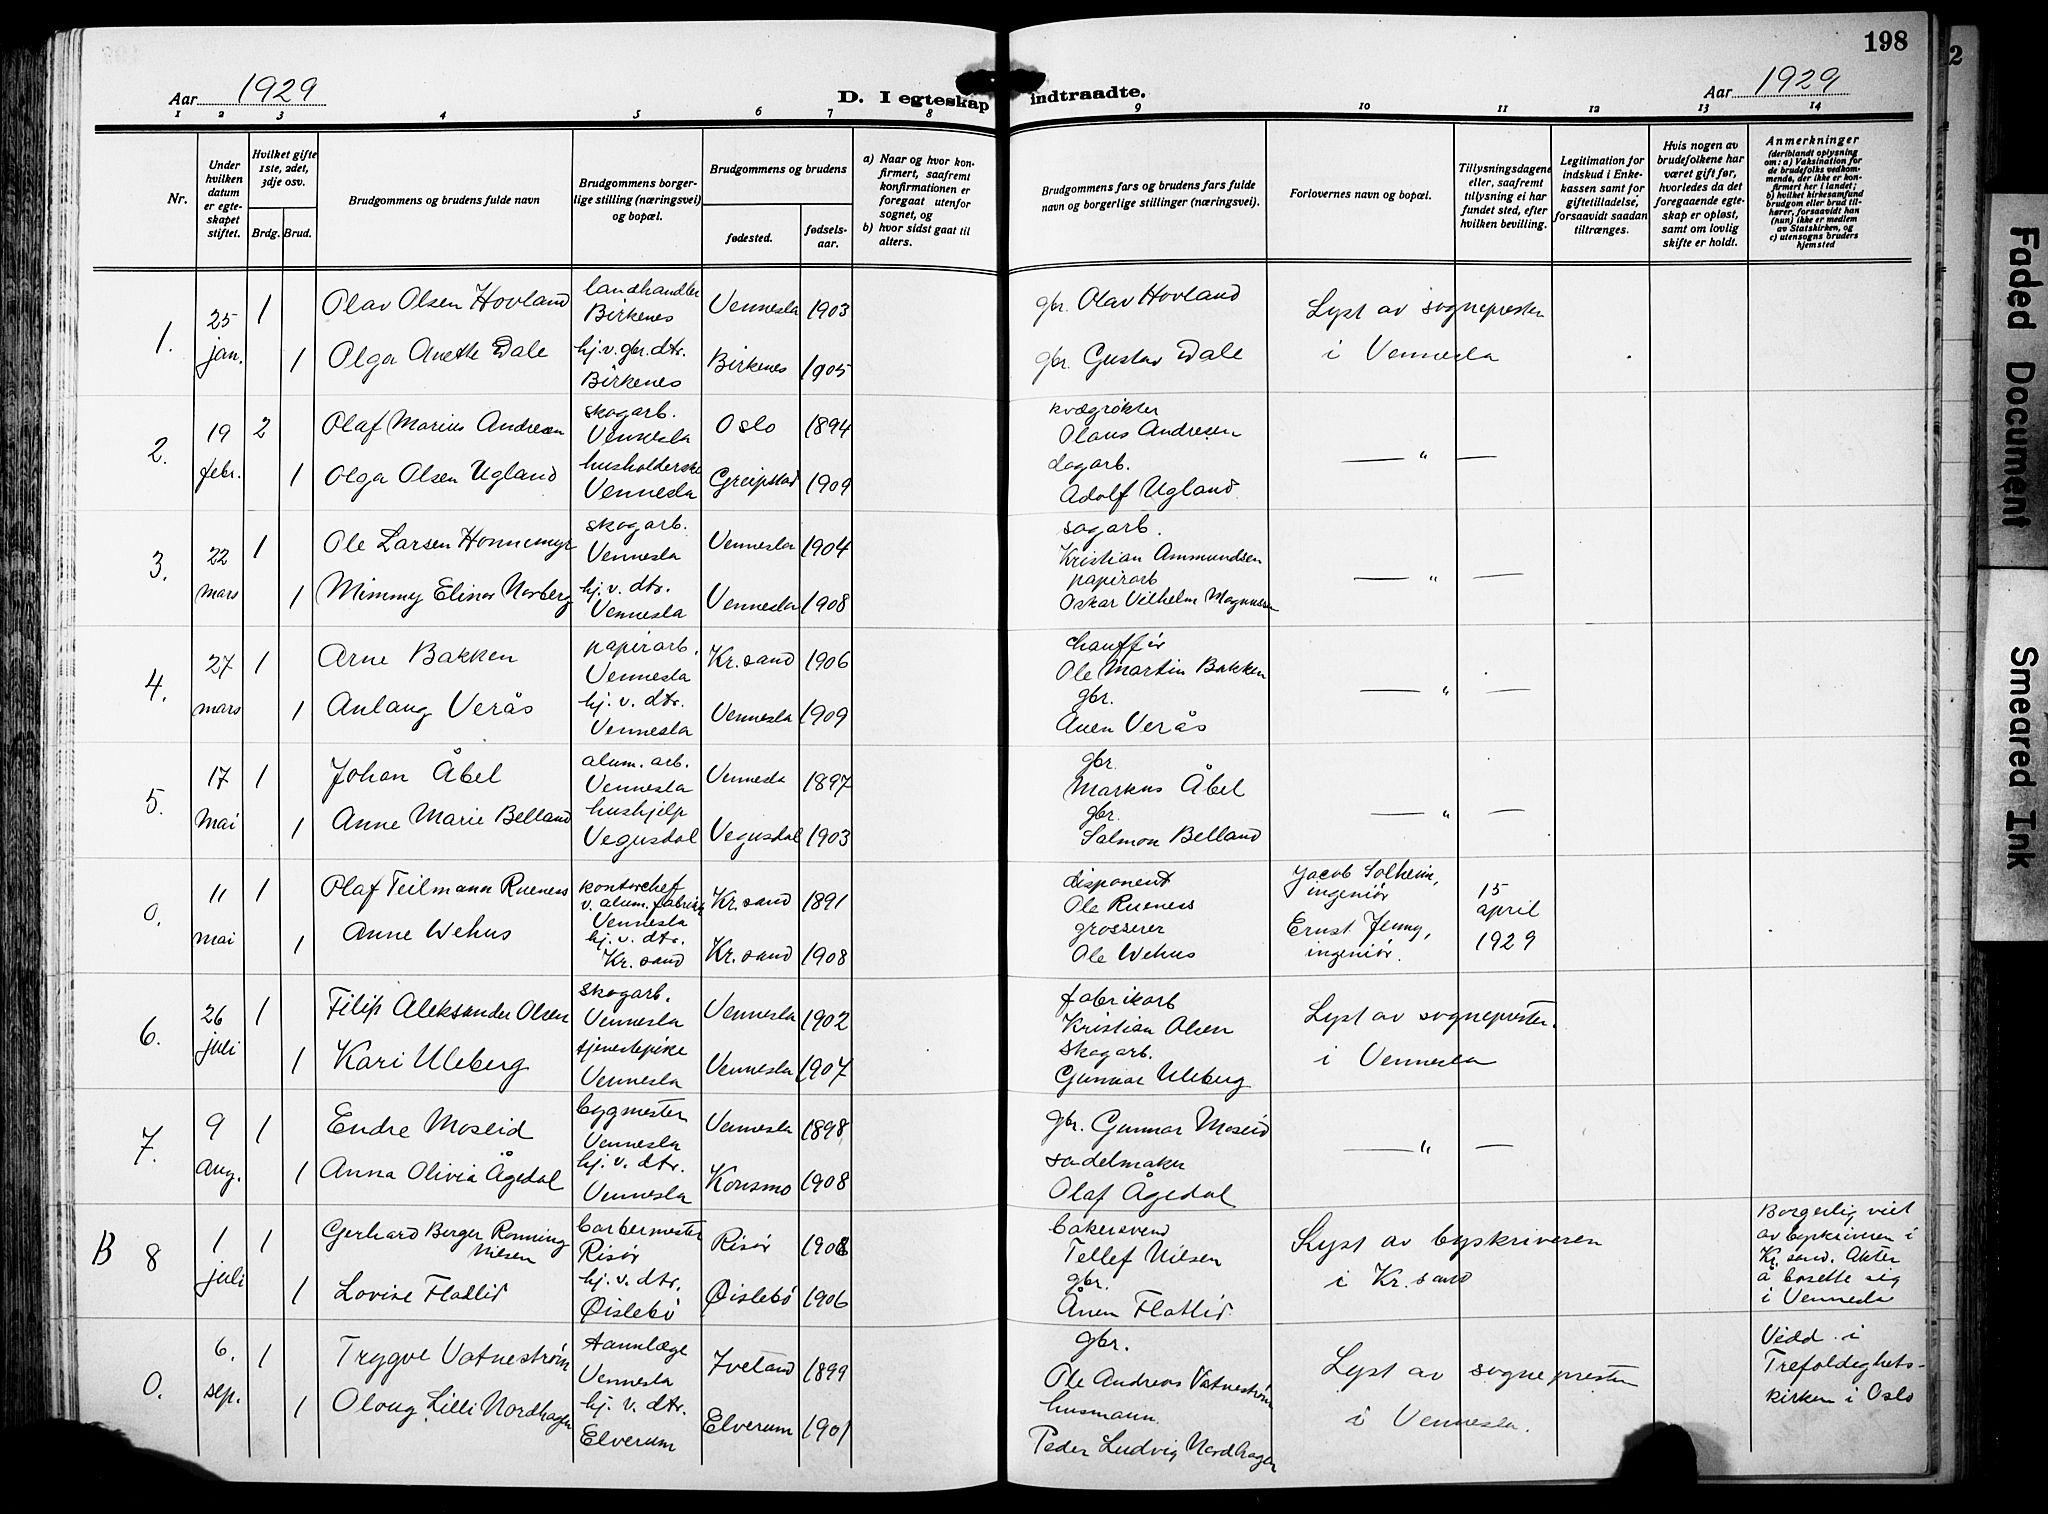 198
Aar 1929
D. I egteskap indtraadte.
Aar 1929
1 2 3 4 5 6 7 8 9 10 11 12 13 14
Nr.
Under hvilken datum er egteskapet stiftet.
Hvilket gifte 1ste, 2det, 3dje osv.
Brdg. Brud.
Brudgommens og brudens fulde navn
Brudgommens borgerlige stilling (næringsvei) og bopæl.
Brudgommens og brudens
fødested.
fødselsaar.
a) Naar og hvor konfirmert, saafremt konfirmationen er foregaat utenfor sognet, og
b) hvor sidst gaat til alters.
Brudgommens fars og brudens fars fulde navn og borgerlige stillinger (næringsvei).
Forlovernes navn og bopæl.
Tillysningsdagene eller, saafremt tillysning ei har fundet sted, efter hvilken bevilling.
Legitimation for indskud i Enkekassen samt for giftetilladelse, forsaavidt saadan tiltrænges.
Hvis nogen av brudefolkene har været gift før, hvorledes da det foregaaende egteskap er opløst, samt om lovlig skifte er holdt.
Anmerkninger
(deriblandt oplysning om: a) Vaksination for de brudefolks vedkommende, der ikke er konfirmert her i landet; b) hvilket kirkesamfund brudgom eller brud tilhører, forsaavidt han (hun) ikke er medlem av Statskirken, og c) utensogns bruders hjemsted
1. 25 jan. 1 Olav Olsen Hovland landhandler Birkenes Vennesla 1903 gbr. Olav Hovland Lyst av sognepresten
1 Olga Anethe Dale hj.v. gbr. dtr. Birkenes Birkenes 1905 gbr. Gustav Dale i Vennesla
2. 19 febr. 2 Olaf Marius Andresen skogarb. Vennesla Oslo 1894 kvægrøkter Olaus Andresen — " —
1 Olga Olsen Ugland husholderske Vennesla Greipstad 1909 dagarb. Adolf Ugland
3. 22 mars 1 Ole Larsen Honnemyr skogarb. Vennesla Vennesla 1904 sagarb. Kristian Ammundsen — " —
1 Mimmy Elinor Norberg hj. v. dtr. Vennesla Vennesla 1908 papirarb Oskar Vilhelm Magnusen
4. 27 mars 1 Arne Bakken papirarb. Vennesla Kr. sand 1906 chauffør Ole Martin Bakken — " —
1 Anlaug Verås hj. v. dtr. Vennesla Vennesla 1909 gbr. Anen Verås
5. 17 Mai 1 Johan Åbel alum. arb. Vennesla Vennesla 1897 gbr. Markus Åbel — " —
1 Anne Marie Belland hushjelp Vegusdal Vegusdal 1903 gbr. Salmon Belland
0. 11 mai 1 Olaf Teilmann Rueness kontorchef v. alum. fabrikk Vennesla Kr. sand 1891 disponent Ole Rueness Jacob Solheim, ingeniør 15 april
1 Anne Wehus hj. v. dtr. Kr. sand Kr. sand 1908 grosserer Ole Wehus Ernst Jenny, ingeniør. 1929
6. 26 juli 1 Filip Aleksander Olsen skogarb. Vennesla Vennesla 1902 fabrikarb Kristian Olsen Lyst av sognepresten
1 Kari Uleberg tjenestepike Vennesla Vennesla 1907 skogarb. Gunnar Uleberg i Vennesla
7. 9 Aug. 1 Endre Moseid bygmester Vennesla Vennesla 1898 gbr. Gunnar Moseid — " —
1 Anna Olivia Ågedal hj. v. dtr. Vennesla Konsmo 1908 sadelmaker Olaf Ågedal
B 8 1 juli 1 Gerhard Berger Rønning Nilsen barbermester Risør Risør bakersvend Tellef Nilsen Lyst av byskriveren Borgerlig viet av byskriveren i Kr. sand. Akter å bosette sig i Vennesla
1 Lovise Flatlid hj. v. dtr. Øislebø Øislebø 1906 gbr. Ånen Flatlid i Kr. sand
0. 6. sep. 1 Trygve Vatnestrøm tannlæge Vennesla Iveland 1899 gbr. Ole Andreas Vatnestrøm Lyst av sognepresten Vidd. i Trefoldighets-kirken i Oslo
1 Olaug Lilli Nordhagen hj. v. dtr. Elverum Elverum 1901 husmann. Peder Ludvig Nordhagen i Vennesla.
2
Faded Document
Smeared Ink